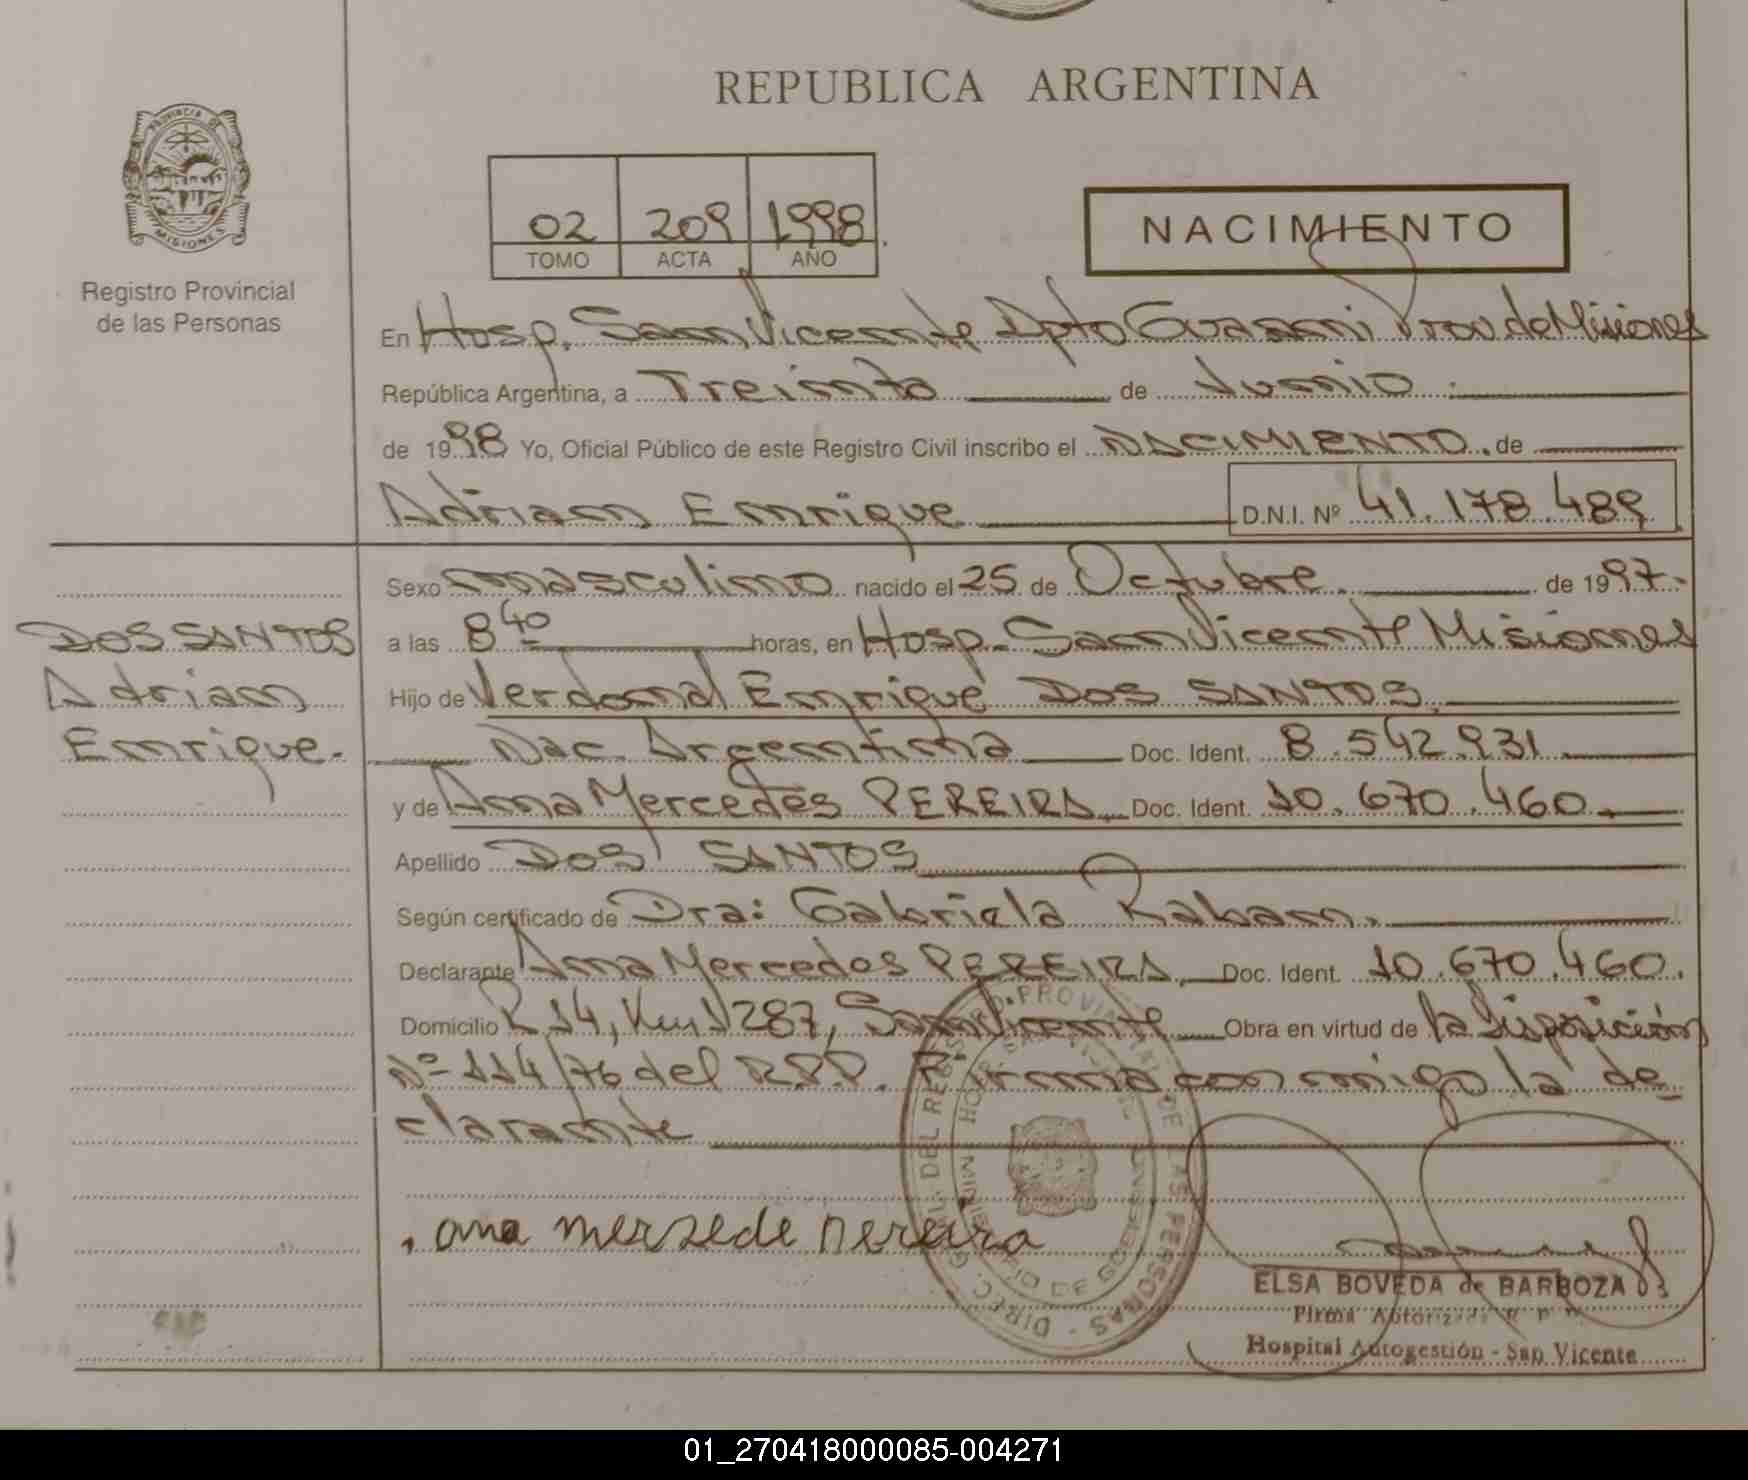 REPUBLICA ARGENTINA
PROVINCIA DE
MISIONES
Registro Provincial
de las Personas
02 209 1998
TOMO ACTA AÑO
NACIMIENTO
En Hosp. San Vicente Dpto Guarani Prov de Misiones
República Argentina, a Treinta de Junio
de 1998 Yo, Oficial Público de este Registro Civil inscribo el NACIMIENTO. de
Adrian Enrique D.N.I. Nº 41.178.489
Sexo masculino nacido el 25 de Octubre de 1997.
DOS SANTOS
Adrian
Enrique.
a las 8 40 horas, en Hosp. San Vicente Misiones
Hijo de Verdonal Enrique DOS SANTOS
Nac. Argentina Doc. Ident. 8.542.931
y de Ana Mercedes PEREIRA Doc. Ident. 10.670.460
Apellido DOS SANTOS
Según certificado de Dra: Gabriela Raban.
Declarante Ana Mercedes PEREIRA Doc. Ident. 10.670.460.
Domicilio R 14, Km 1287, San Vicente Obra en virtud de la Disposición
Nº 114/76 del R.P.P. Firma conmigo la de
clarante
ana mersede pereira
ELSA BOVEDA de BARBOZA
Firma Autorizada R P P
Hospital Autogestión - San Vicente
01_270418000085-004271